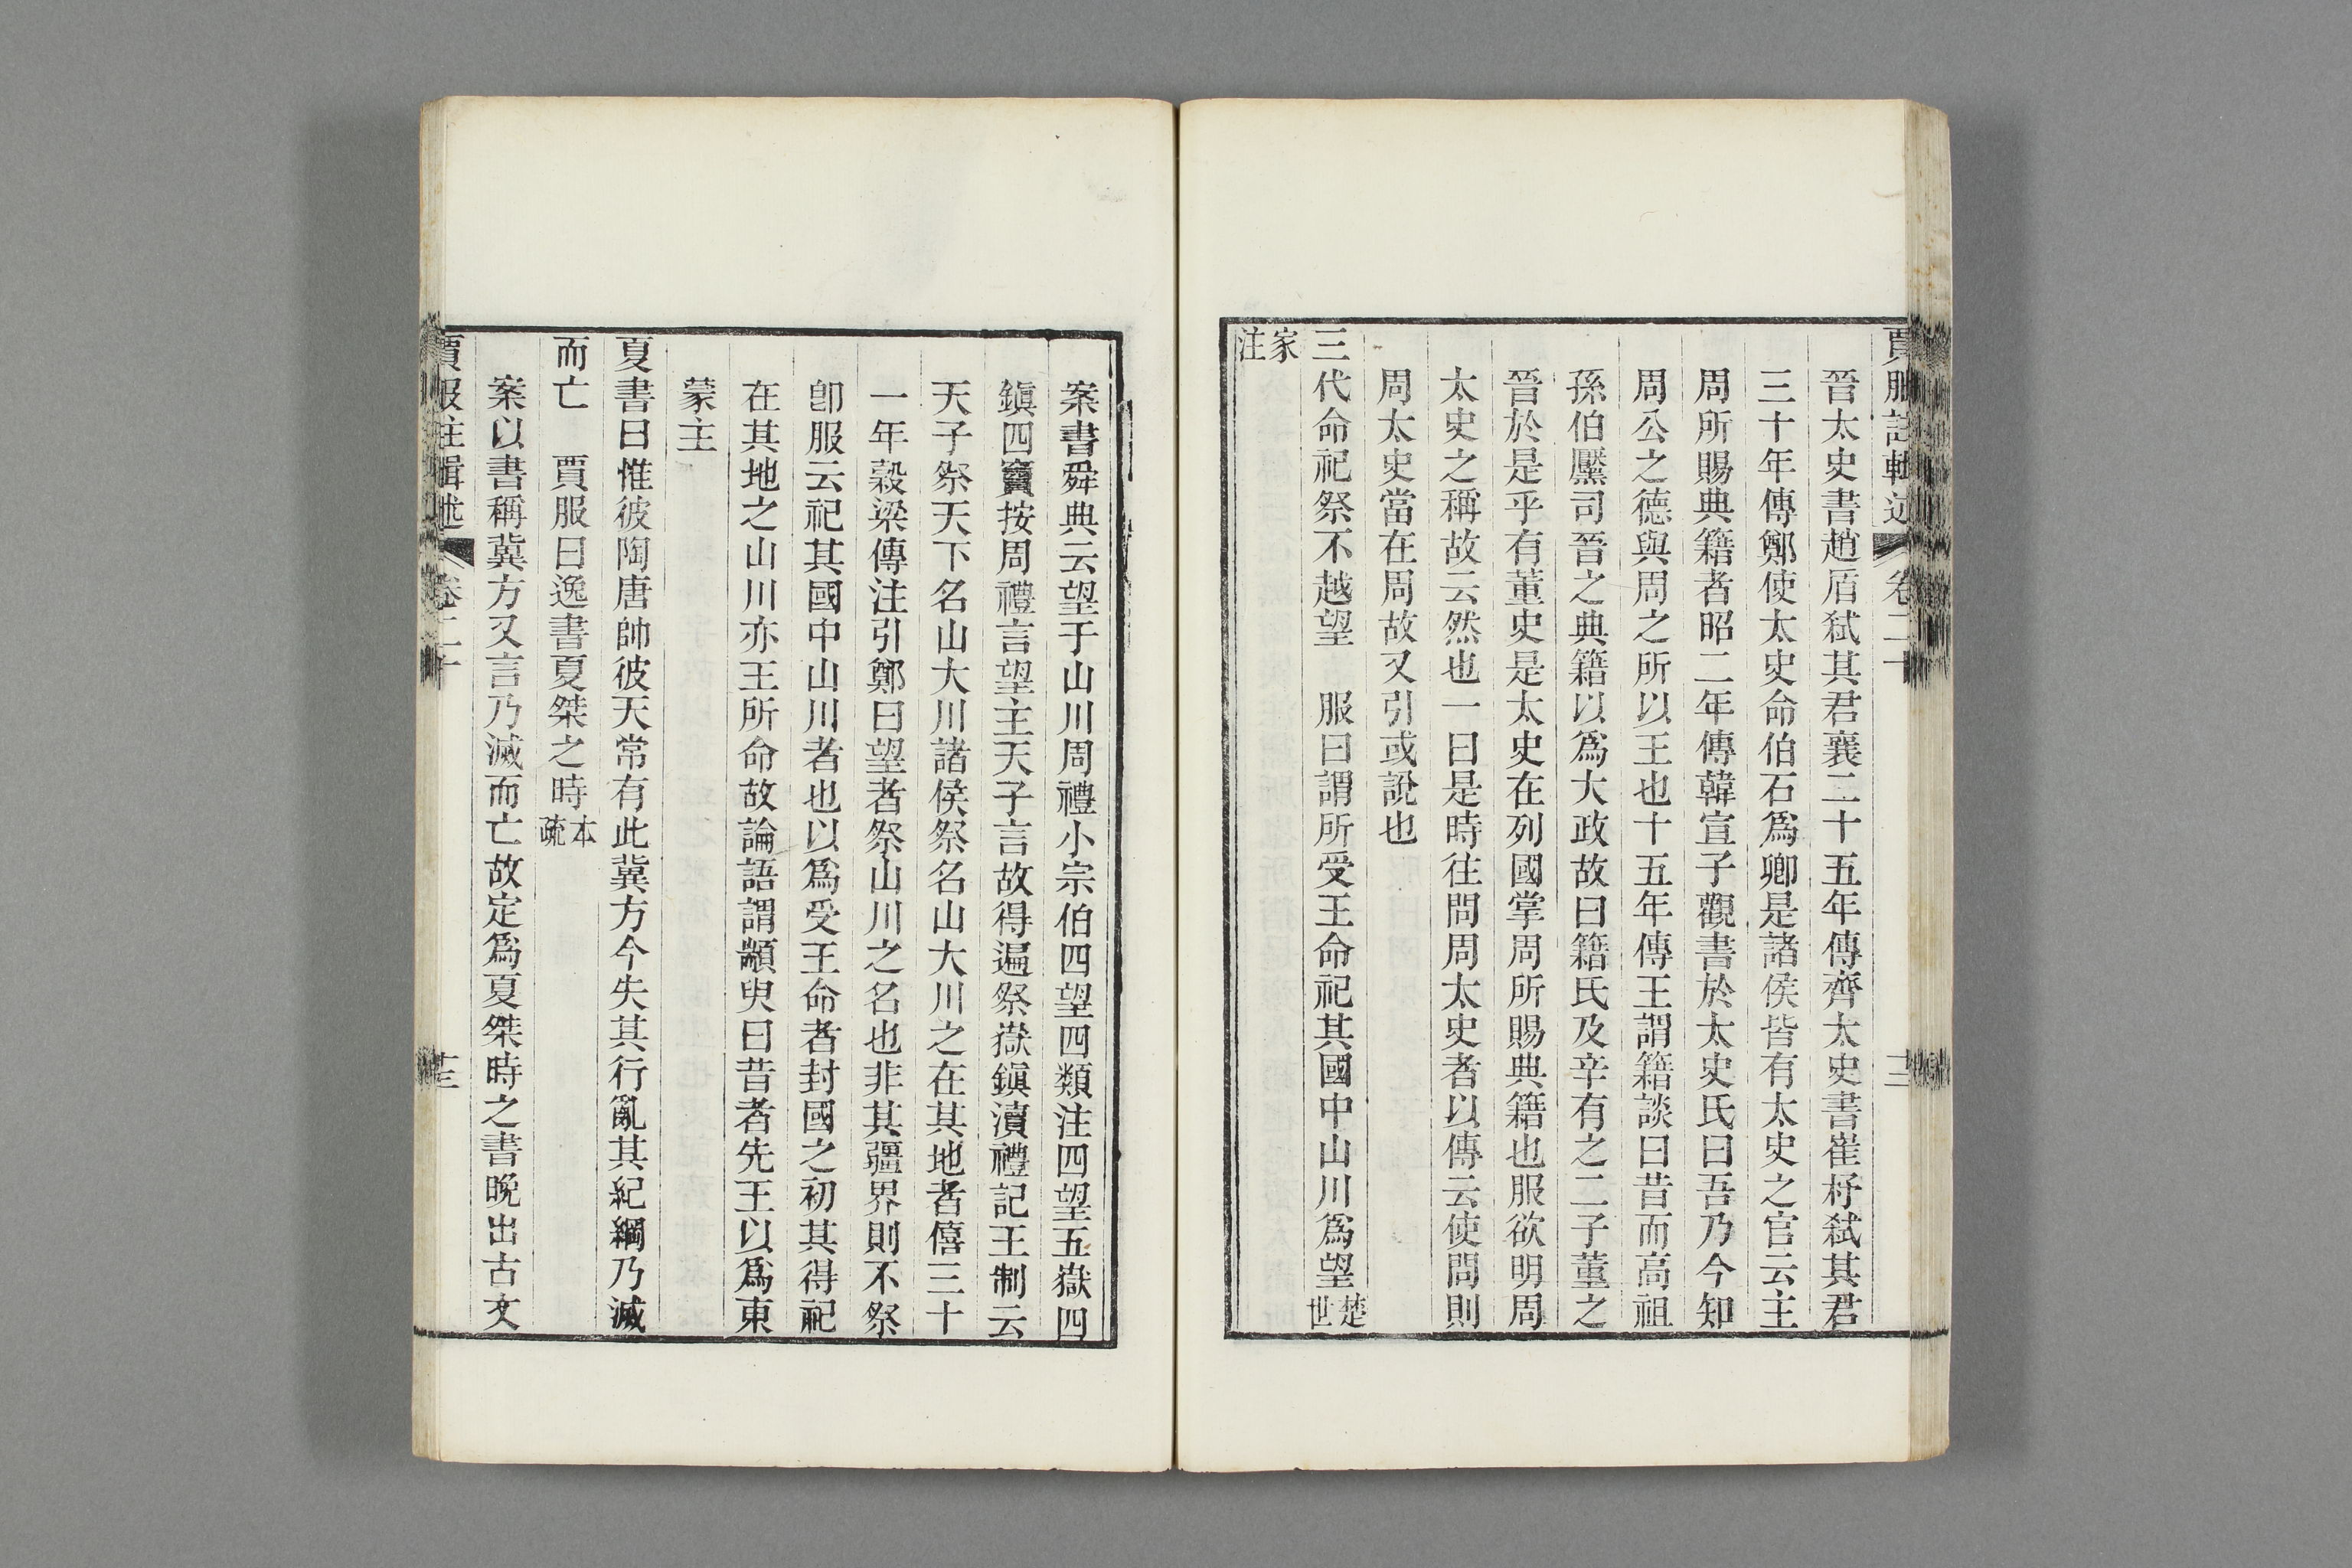 賈服注輯述 卷二十
晉太史書趙盾弑其君襄二十五年傳齊太史書崔杼弑其君
三十年傳鄭使太史命伯石爲卿是諸侯皆有太史之官云主
周所賜典籍者昭二年傳韓宣子觀書於太史氏曰吾乃今知
周公之德與周之所以王也十五年傳王謂籍談曰昔而高祖
孫伯黶司晉之典籍以爲大政故曰籍氏及辛有之二子董之
晉於是乎有董史是太史在列國掌周所賜典籍也服欲明周
太史之稱故云然也一曰是時往問周太史者以傳云使問則
周太史當在周故又引或說也
三代命祀祭不越望 服曰謂所受王命祀其國中山川爲望楚世
家注
案書舜典云望于山川周禮小宗伯四望四類注四望五嶽四
鎭四竇按周禮言望主天子言故得遍祭嶽鎭瀆禮記王制云
天子祭天下名山大川諸侯祭名山大川之在其地者僖三十
一年穀梁傳注引鄭曰望者祭山川之名也非其疆界則不祭
卽服云祀其國中山川者也以爲受王命者封國之初其得祀
在其地之山川亦王所命故論語謂顓臾曰昔者先王以爲東
蒙主
夏書曰惟彼陶唐帥彼天常有此冀方今失其行亂其紀綱乃滅
而亡 賈服曰逸書夏桀之時本疏
案以書稱冀方又言乃滅而亡故定爲夏桀時之書晚出古文
賈服注輯述 卷二十